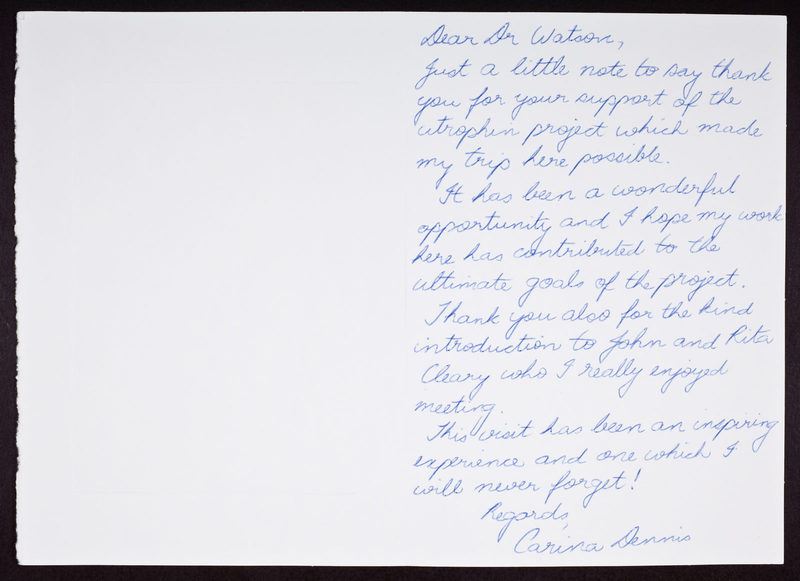 Dear Dr Watson,
Just a little note to say thank
you for your support of the
utrophin project which made
my trip here possible.
It has been a wonderful
opportunity and I hope my work
here has contributed to the
ultimate goals of the project.
Thank you also for the kind
introduction to John and Rita
Cleary who I really enjoyed
meeting.
This visit has been an inspiring
experience and one which I
will never forget!
Regards,
Carina Dennis